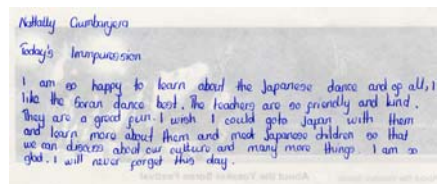 Nathally Gumbanjera
Today's Immpuression
I am so happy to learn about the Japanese dance and op all, I
like the Soran dance best. The teachers are so friendly and kind.
They are a great fun. I wish I could goto Japan with them
and learn more about them and meet Japanese children so that
we can discuss about our culture and many more things. I am so
glad. I will never forget this day.
About the Yosakoi Soran Festival